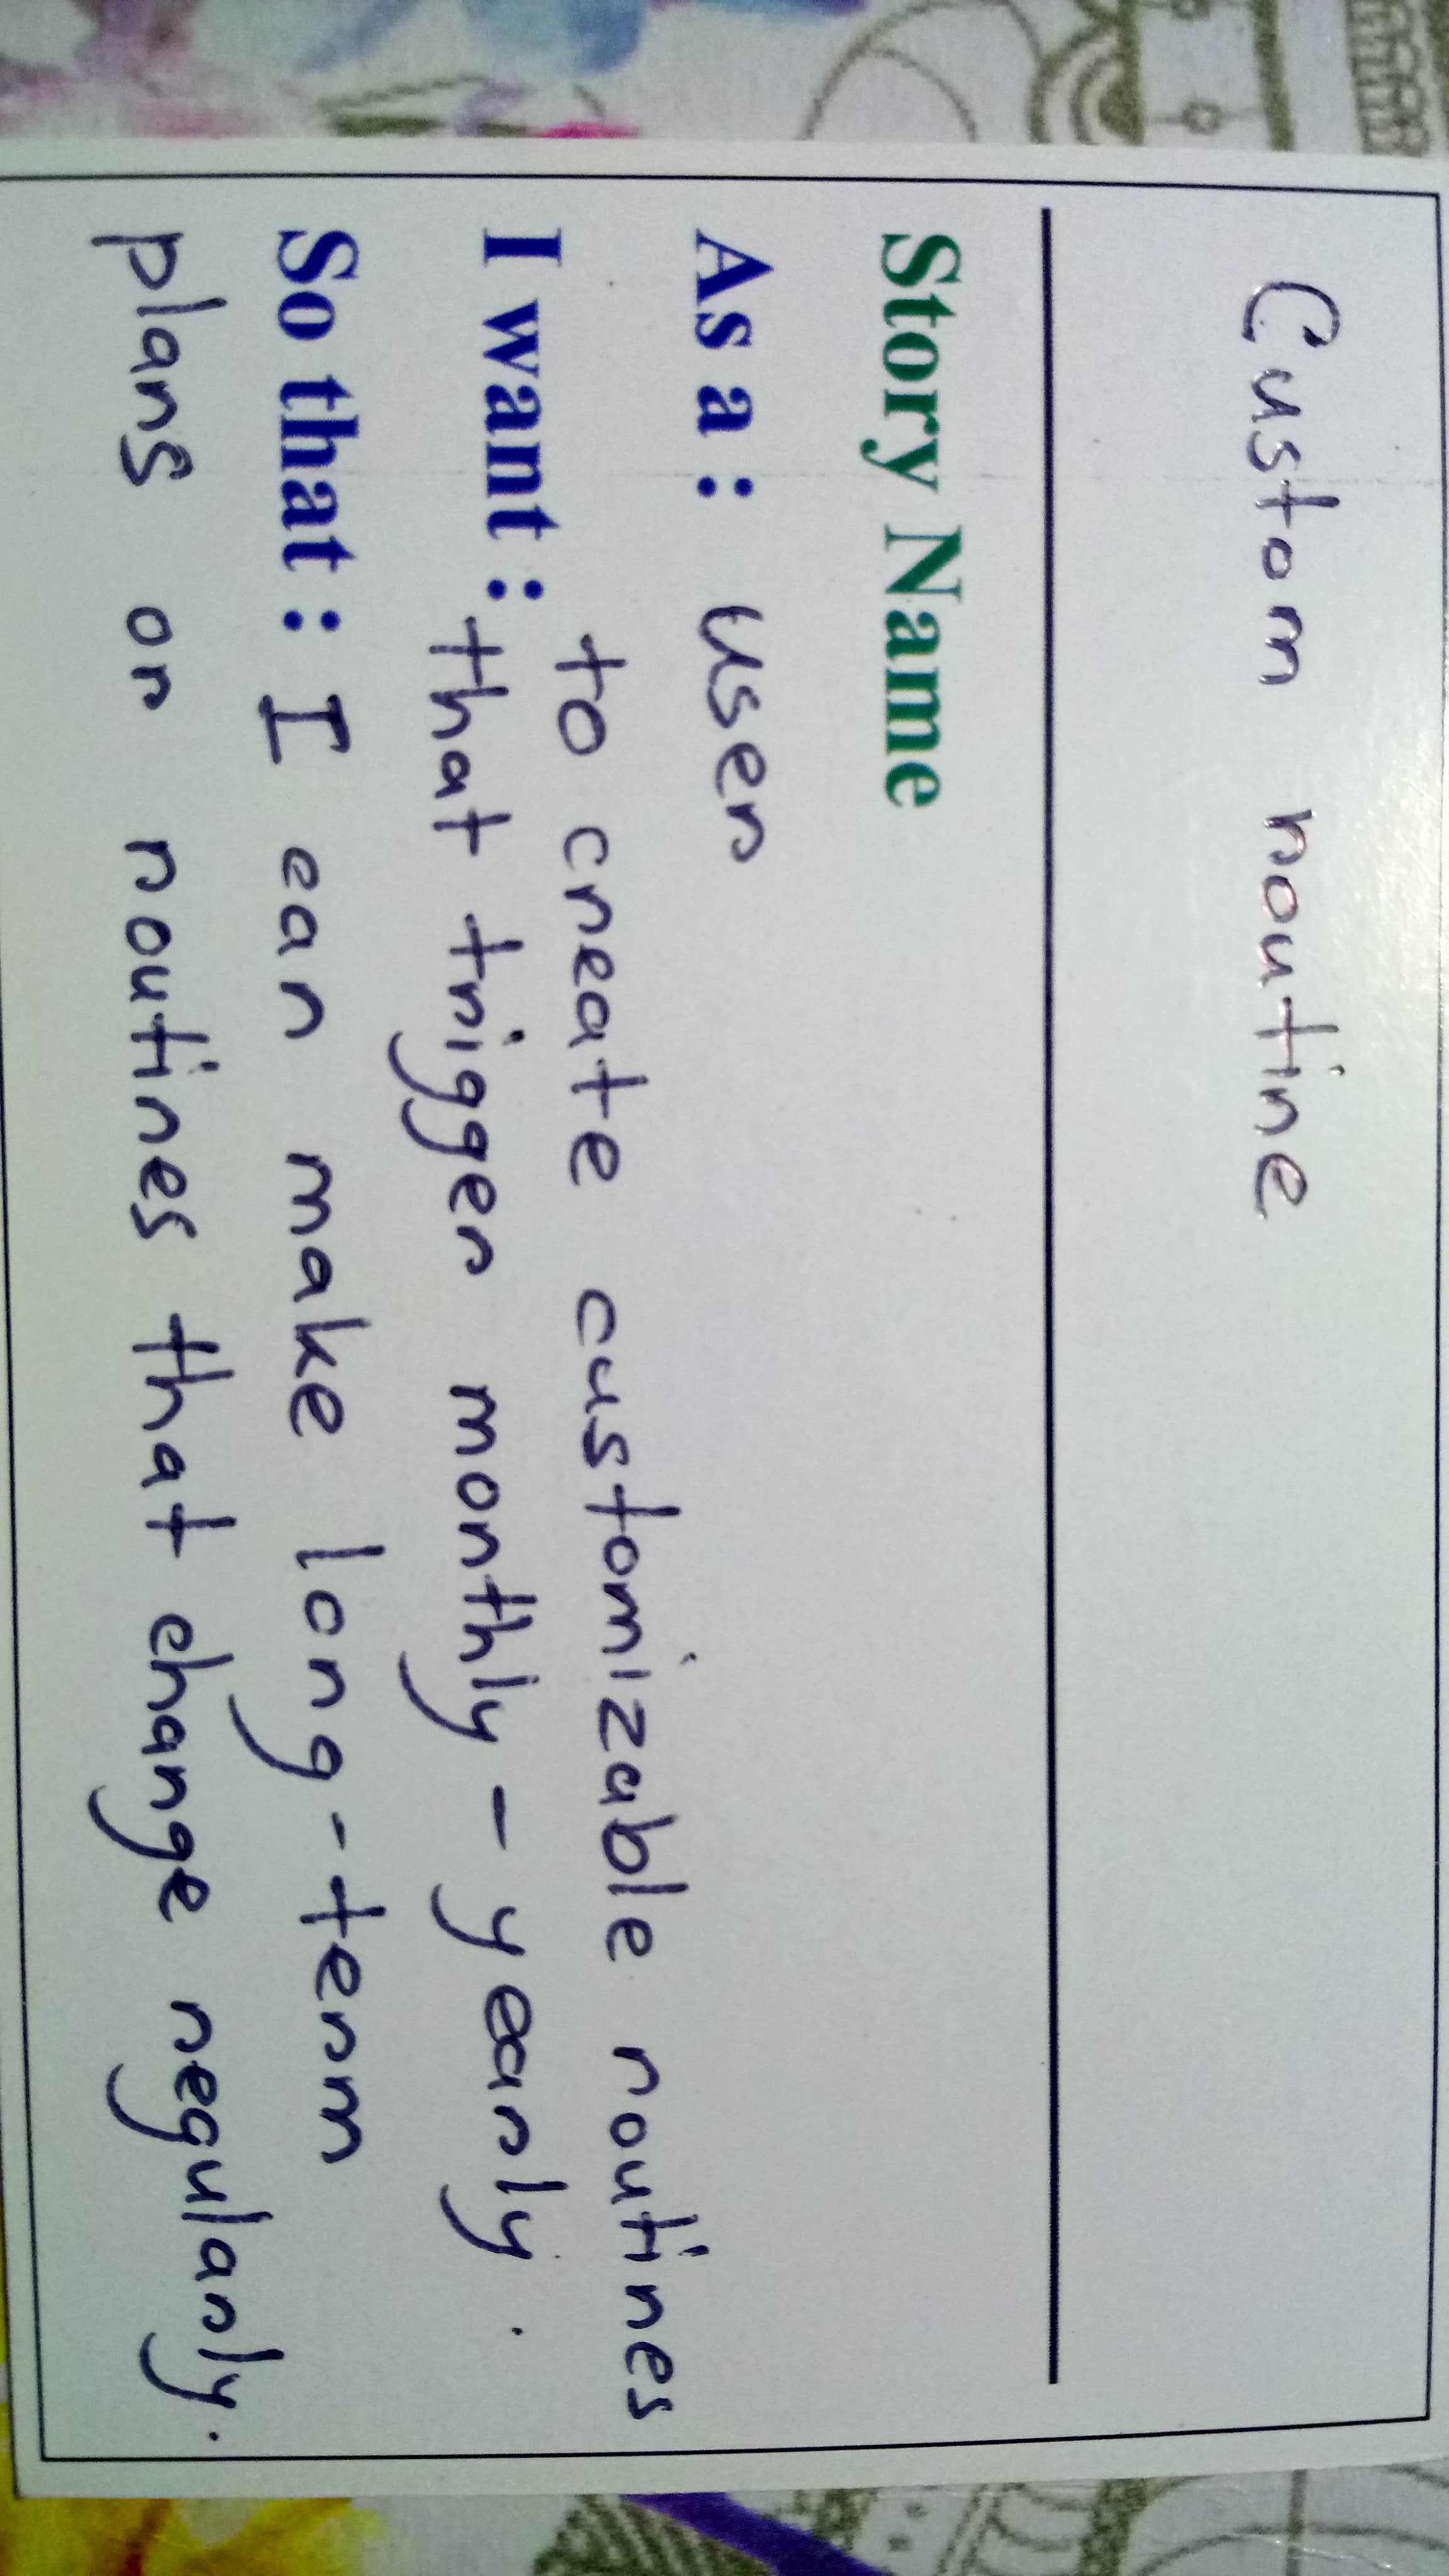 Custom routine
Story Name
As a : user
I want : to create customizable routines
that trigger monthly - yearly.
So that : I can make long-term
plans or routines that change regularly.